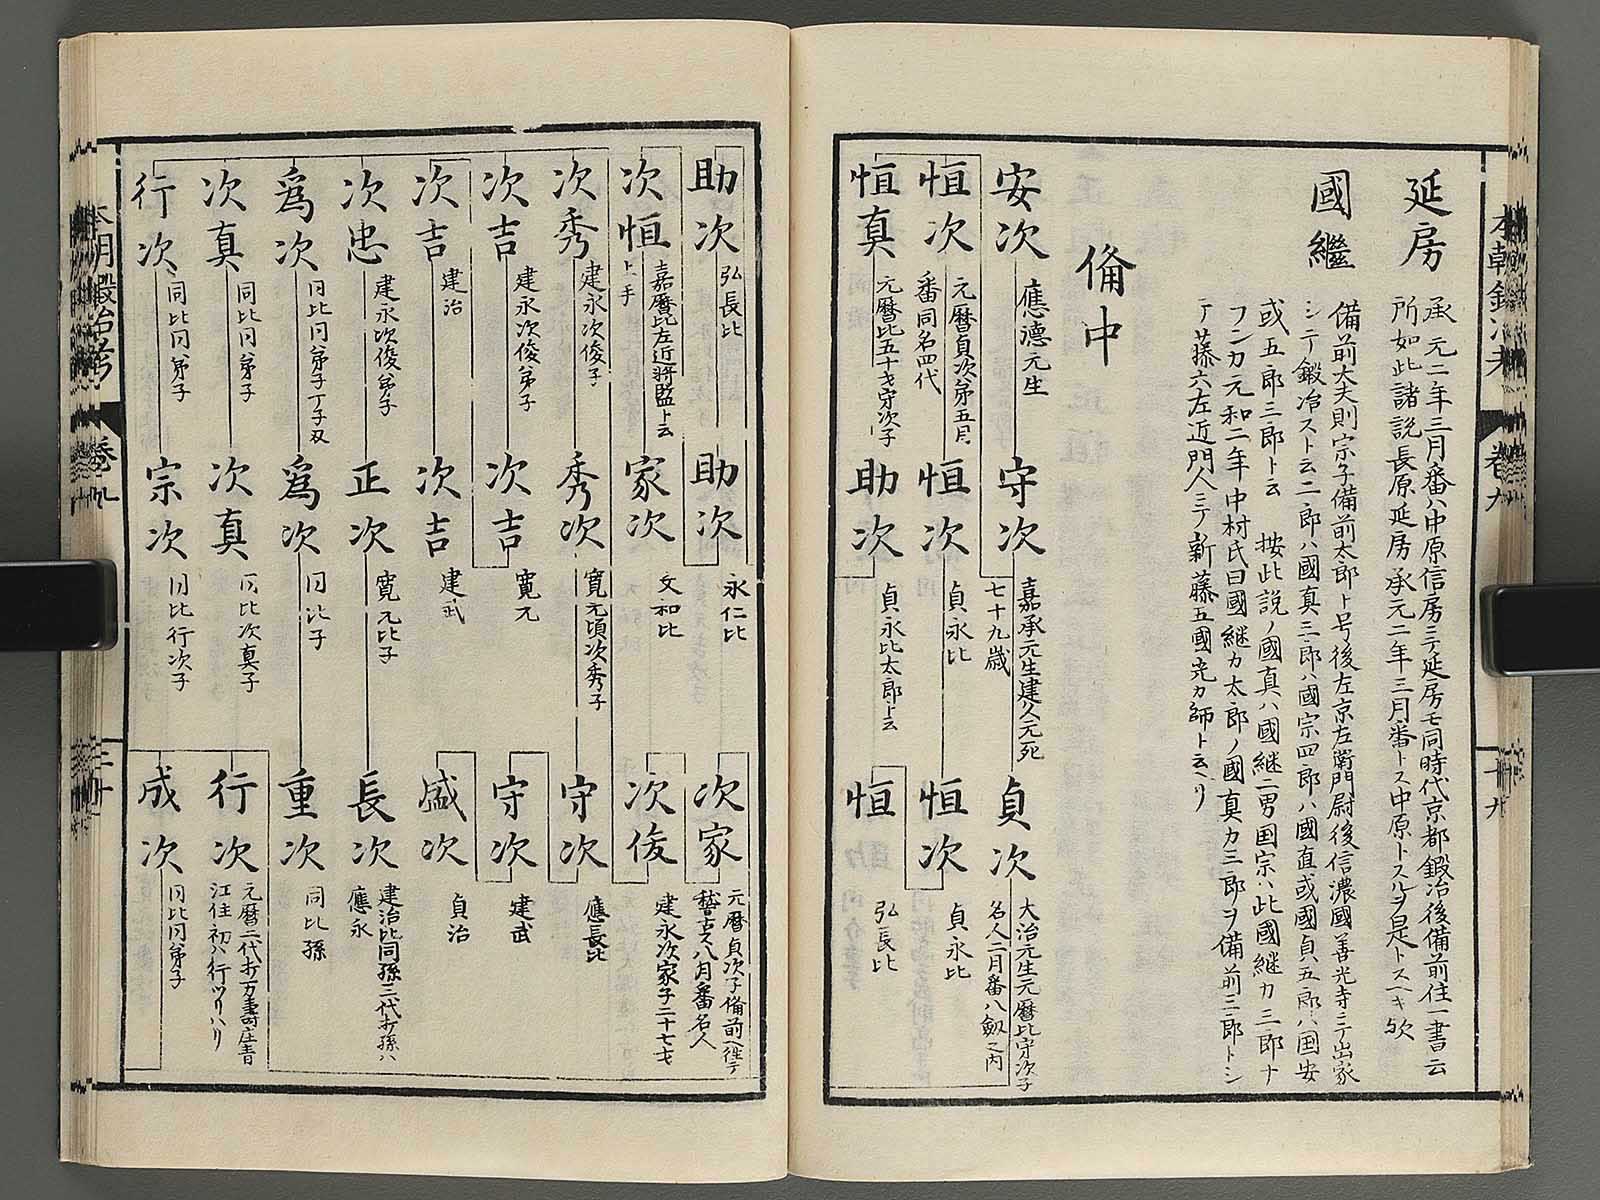 延房
承元二年三月番ハ中原信房ニテ延房モ同時代京都鍛冶後備前住一書云
所如此諸説長原延房承元二年三月番トス中原トスルヲ是トスヘキ欤
國繼
備前大夫則宗子備前太郎ト号後左京左衛門尉後信濃國善光寺ニテ出家
シテ鍛冶スト云二郎ハ國真三郎ハ國宗四郎ハ國直或國貞五郎ハ国安
或五郎三郎ト云 按此説ノ國真ハ國継二男国宗ハ此國継カ三郎ナ
フンカ元和二年中村氏曰國継カ太郎ノ國真カ三郎ヲ備前三郎トシ
テ藤六左近門人ニテ新藤五國光カ師ト云ヘリ
備中
安次 應德元生
守次 嘉承元生建久元死
七十九歳
貞次 大治元生元曆比守次子
名人二月番八劔之内
恒次 元曆貞次弟五月
番同名四代
恒次 貞永比
恒次 貞永比
恒真 元曆比五十才守次子
助次 貞永比太郎ト云
恒 弘長比
助次 弘長比
助次 永仁比
次家 元曆貞次子備前ヘ住テ
稽古ス八月番名人
次恒 嘉曆比左近将監ト云
上手
家次 文和比
次俊 建永次家子二十七才
次秀 建永次俊子
秀次 寛元頃次秀子
守次 應長比
次吉 建永次俊弟子
次吉 寛元
守次 建武
次吉 建治
次吉 建武
盛次 貞治
次忠 建永次俊弟子
正次 寛元比子
長次 建治比同孫三代打孫ハ
應永
爲次 同比同弟子丁子刄
爲次 同比子
重次 同比孫
次真 同比同弟子
次真 同比次真子
行次 元曆二代打万壽庄青
江住初ハ行ツリハリ
行次 同比同弟子
宗次 同比行次子
成次 同比同弟子
本朝鍛冶考 卷九 十九
本朝鍛冶考 卷九 二十